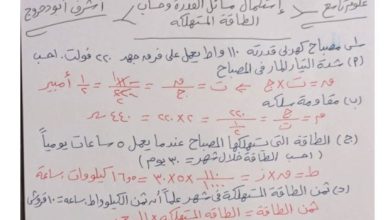 علوم تاسع
إستعمال مسائل القدرة وحساب الطاقة المستهلكة
أشرف أبو دحروج
س١ مصباح كهربي قدرته ١١٠ واط يعمل على فرق جهد ٢٢٠ فولت. احسب
(أ) شدة التيار المار في المصباح
= ت × ج ⇐ ت = = ١١٠ / ٢٢٠ = ١ / ٢ أمبير
(ب) مقاومة سلكه
م = = ٢٢٠ = ٢٢٠ × ٢ = ٤٤٠
(ج) الطاقة التي استهلكها المصباح عندما يعمل ٥ ساعات يومياً
(احسب الطاقة خلال شهر = ٣٠ يوم)
ط = × ز = ١١٠ / ١٠٠٠ × ٥ × ٣٠ = كيلووات. ساعة
(د) ثمن الطاقة المستهلكة في شهر علماً أنه ثمن الكيلو واط. ساعة = ١٠ قروش
ثمن الطاقة = الطاقة المستهلكة ×